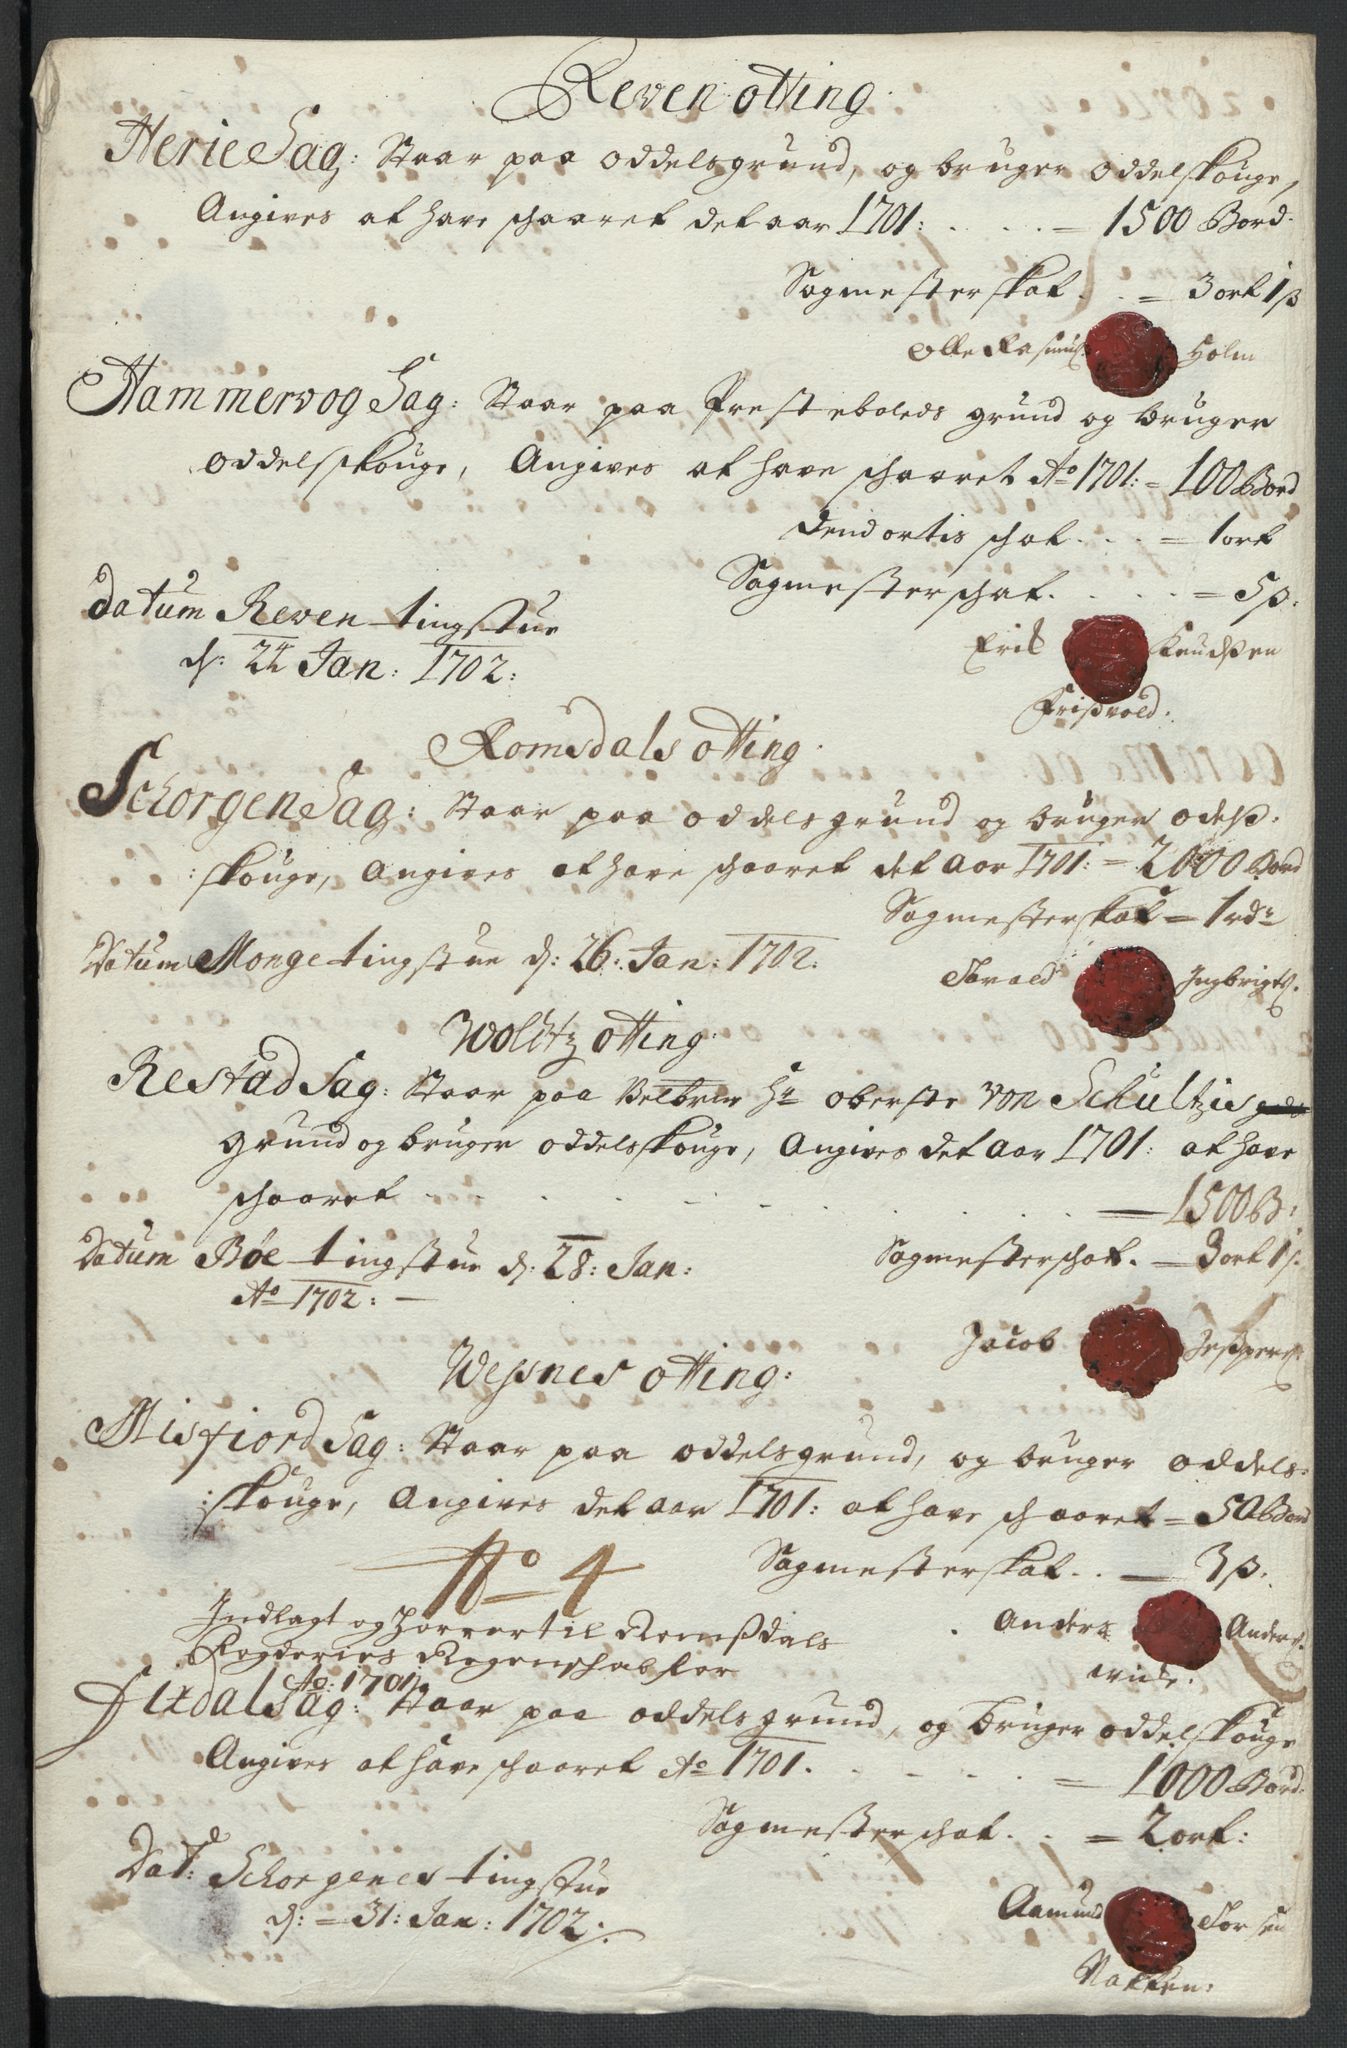 Reven otting.
Herie Sag: Staar paa oddelsgrund, og bruger oddelskouge,
Angives at have schaaret det aar 1701: . . . . = 1500 Bord.
Sagmesterskat . . . = 3 ort 1 ß
Olle Rasmus: Holm
Hammervog Sag: Staar paa Prestebolets grund og bruger
oddelskouge, Angives at have schaaret Ao 1701: = 100 Bord
Dend ortis schat . . . = 1 ort
Sagmesterschat . . . . = 5 ß:
Datum Reven tingstue
d: 24 Jan: 1702:
Erik Knudsen
Frisvold.
Romsdals otting.
Schorgen Sag: Staar paa oddelsgrund og bruger odelß:
:skouge, Angives at have schaaret det Aar 1701: = 2000 Bord
Sagmesterskat = 1 rdr
Datum Monge tingstue d: 26: Jan: 1702.
Torvald Ingbrigts.
Wolitz otting:
Restad Sag: Staar paa Velbrne Hr oberste von Schultzis
grund og bruger oddelskouge, Angives det Aar 1701: at have
schaaret . . . . . . . . . = 1500 B:
Datum Bøe tingstue d: 28: Jan:
Ao 1702: —
Sagmesterschat. — 3 ort 1 ß.
Jacob Jespers:
Wesnes otting:
Misfiord Sag: Staar paa oddelsgrund, og bruger oddels:
:skouge, Angives det aar 1701: at have schaaret = 50 Bord
No 4
Sagmesterskat . . — 3 ß.
Indlagt og hører til Romsdals
Fogderies Regenschab for
Ao: 1701.
Anders Anders:
Wide.
Fixdal Sag: Staar paa oddels grund, og bruger oddelskouge
Angives at have schaaret Ao 1701. . . . . = 1000 Bord:
Sagmesterschat . . . = 2 ort:
Dat: Schorgenes tingstue
d: = 31: Jan: 1702:
Aamund Torsen
Nakken: